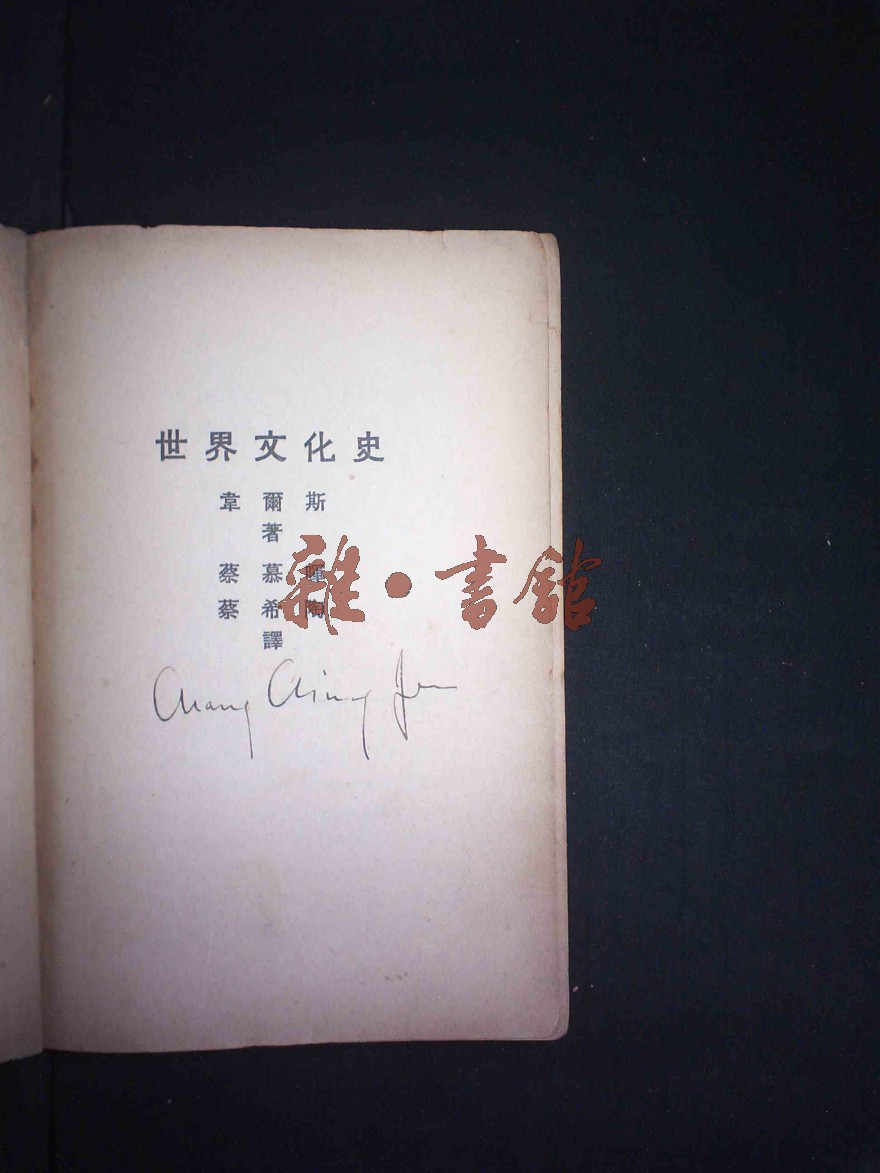 世界文化史
韋爾斯
著
蔡慕暉
蔡希陶
譯
雜·書館
Chang Ching Jen